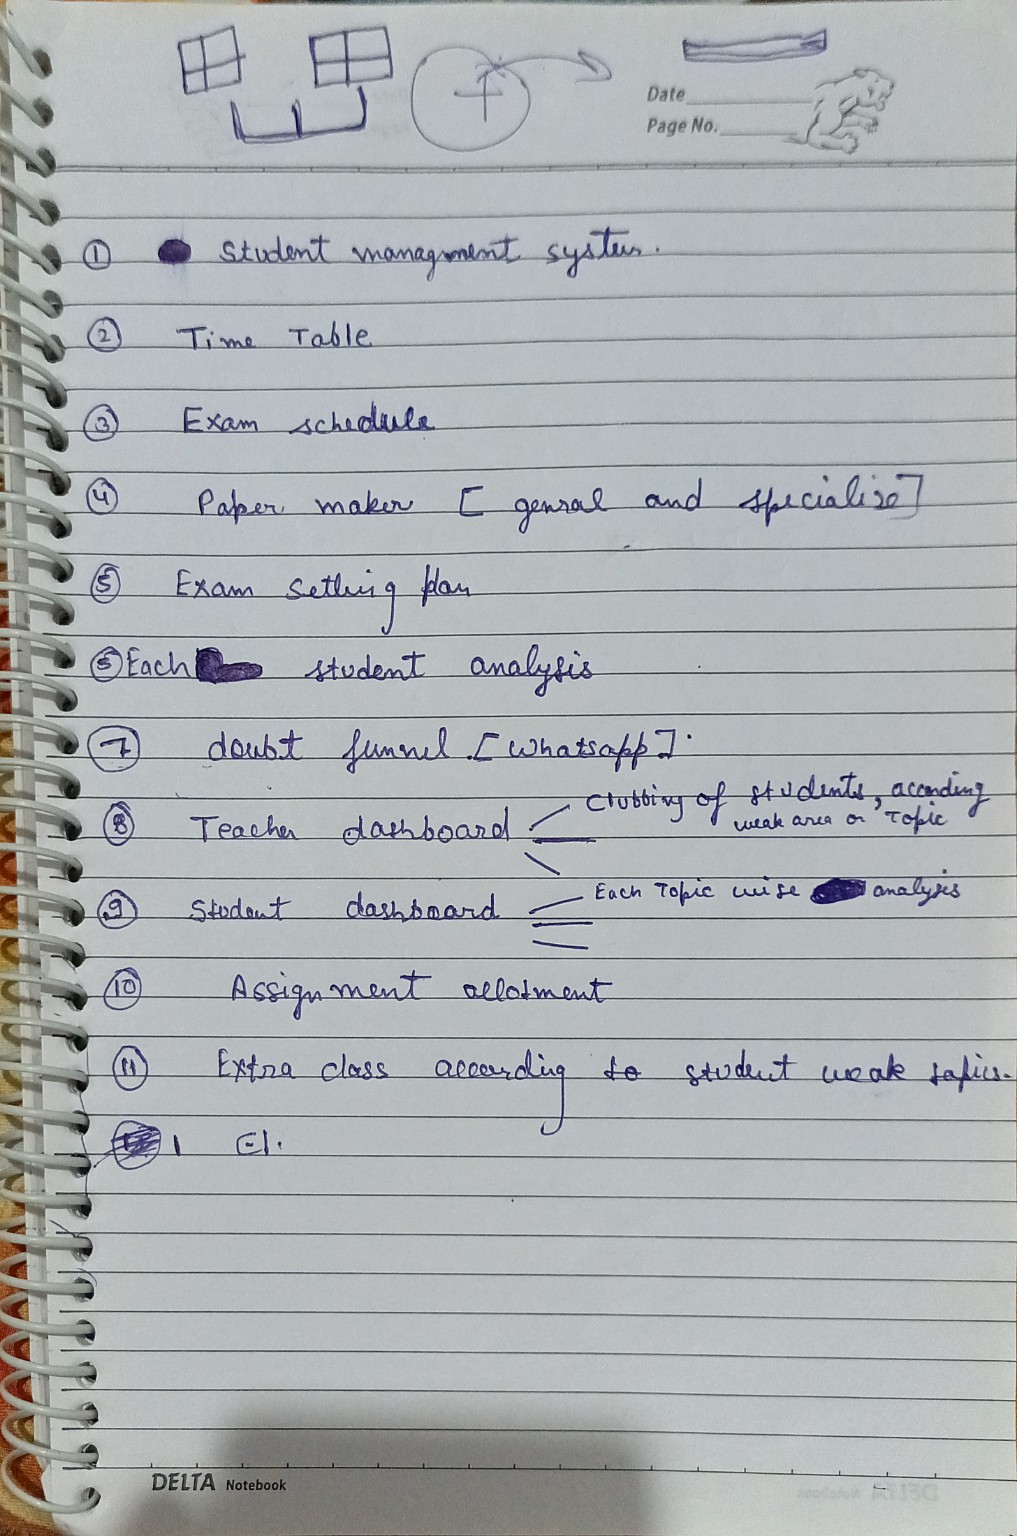 Date
Page No.
① Student managment system.
② Time Table
③ Exam schedule
④ Paper maker [ genral and specialize]
⑤ Exam setting plan
⑤ Each student analysis
⑦ doubt funnel [whatsapp].
⑧ Teacher dashboard - Clubbing of students, according
weak area or Topic
⑨ Student dashboard - Each Topic wise analysis
⑩ Assignment allotment
⑪ Extra class according to student weak topics.
DELTA Notebook